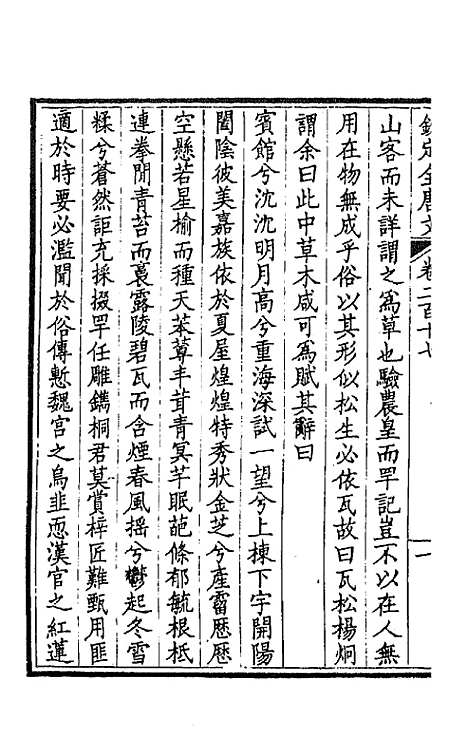 欽定全唐文 卷二百十七 一
山客而未詳謂之為草也驗農皇而罕記豈不以在人無
用在物無成乎俗以其形似松生必依瓦故曰瓦松楊炯
謂余曰此中草木咸可為賦其辭曰
賓館兮沈沈明月高兮重海深試一望兮上棟下宇開陽
闔陰彼美嘉族依於夏屋煌煌特秀狀金芝兮產霤歷歷
空懸若星榆而種天苯䔿丰茸青冥芊眠葩條郁毓根柢
連拳閒青苔而裛露陵碧瓦而含煙春風搖兮鬱起冬雪
糅兮蒼然詎充採掇罕任雕鐫桐君莫賞梓匠難甄用匪
適於時要必濫聞於俗傳慙魏宮之烏韭恧漢官之紅蓮